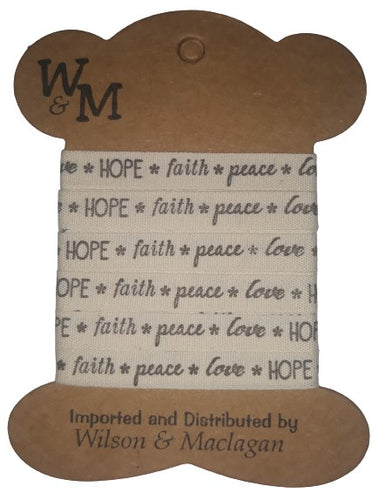 W
&M
ve * HOPE * faith * peace * lov
* HOPE * faith * peace * love
HOPE * faith * peace * love *
OPE * faith * peace * love * H
* faith * peace * love * HO
* faith * peace * love * HOPE
Imported and Distributed by
Wilson & Maclagan